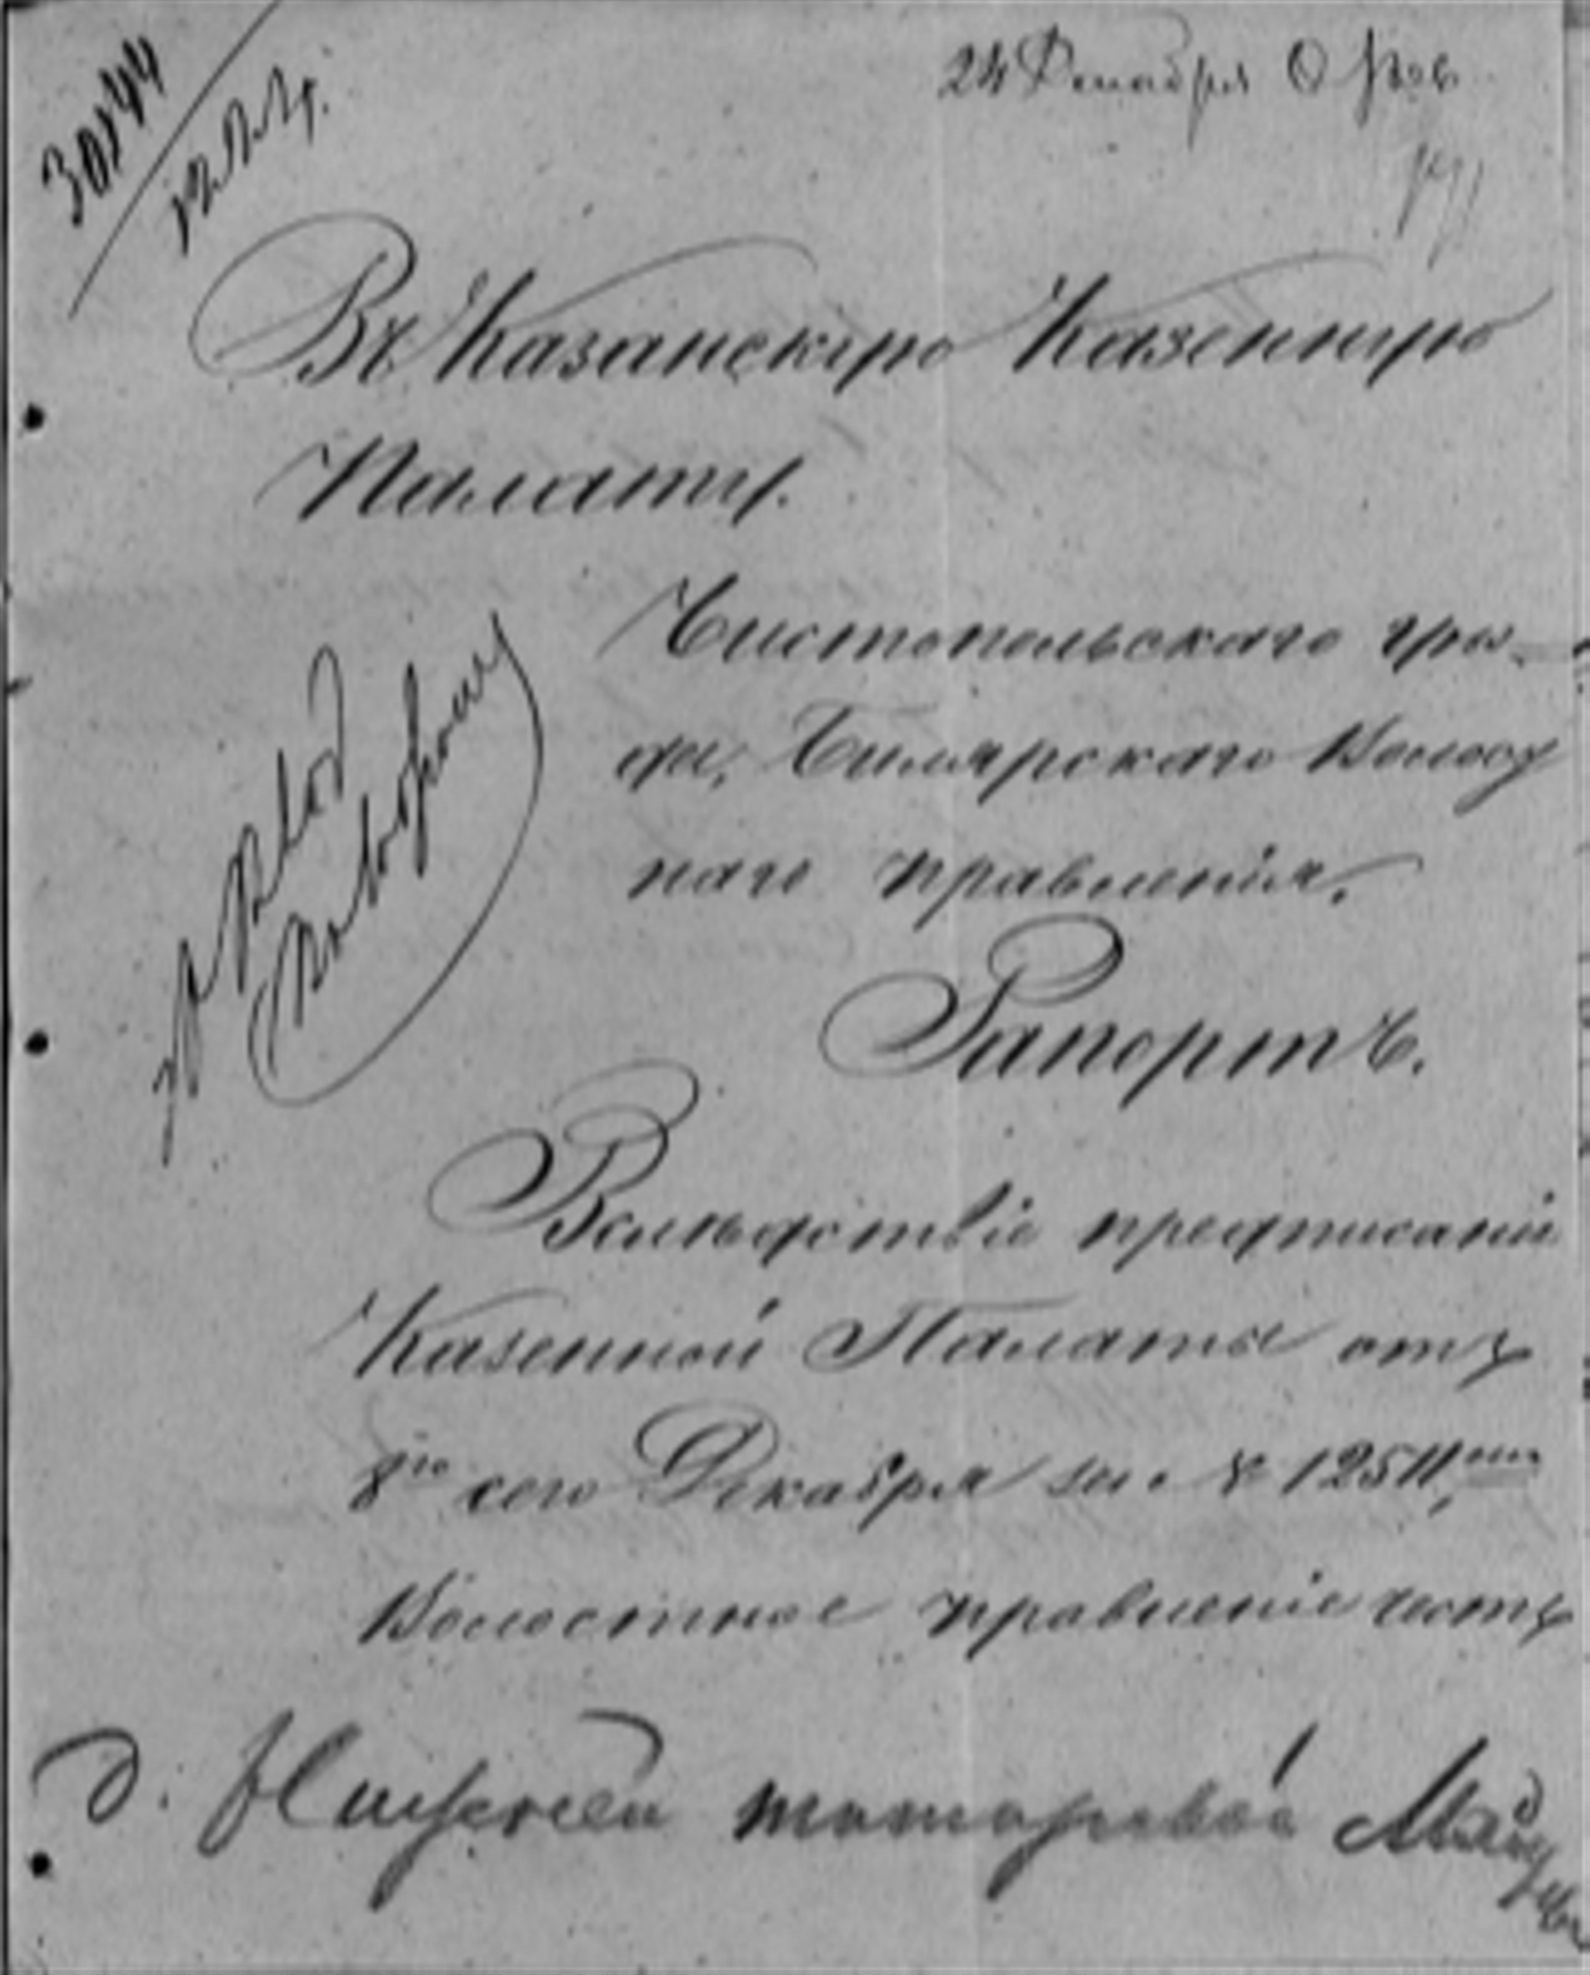 30144
24 Декабря
Въ Казанскую Казенную
Палату.
Чистопольскаго уѣз-
да, Билярскаго Волост
наго правленія.
Рапортъ.
Вслѣдствіе предписанія
Казенной Палаты отъ
8го сего Декабря за № 12511,
Волостное правленіе честь
д. Нижней татарской Майны